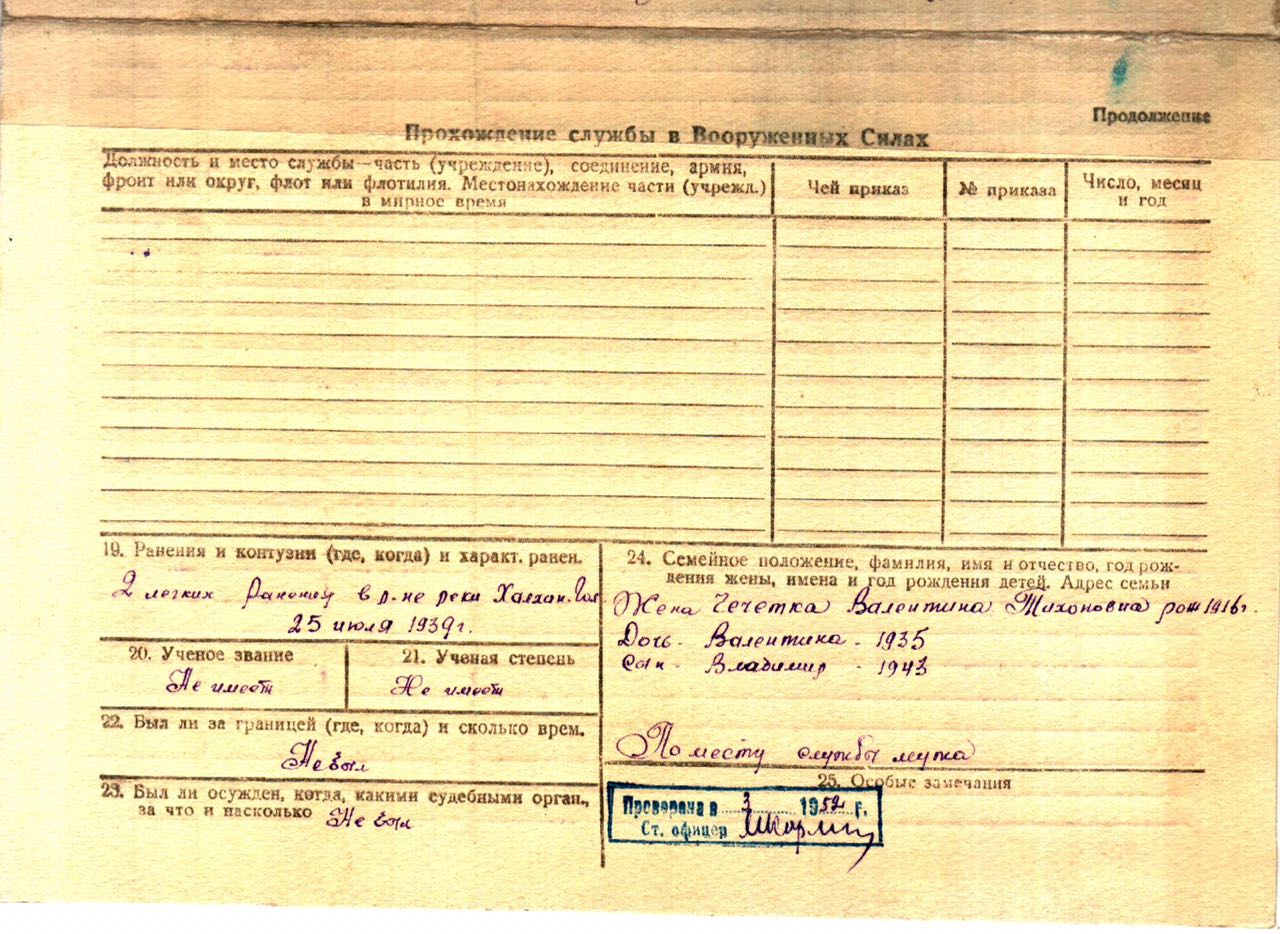 Продолжение
Прохождение службы в Вооруженных Силах
Должность и место службы—часть (учреждение), соединение, армия,
фронт или округ, флот или флотилия. Местонахождение части (учрежд.)
в мирное время
Чей приказ
№ приказа
Число, месяц
и год
19. Ранения и контузии (где, когда) и характ. ранен.
2 легких ранения в р-не реки Халхин-Гол
25 июля 1939г.
20. Ученое звание
Не имеет
21. Ученая степень
Не имеет
22. Был ли за границей (где, когда) и сколько врем.
Не был
23. Был ли осужден, когда, какими судебными орган.,
за что и насколько Не был
24. Семейное положение, фамилия, имя и отчество, год рож-
дения жены, имена и год рождения детей. Адрес семьи
Жена Чечетка Валентина Тихоновна рож 1916г.
Дочь - Валентина - 1935
Сын - Владимир - 1943
По месту службы мужа
25. Особые замечания
Проверена в 3 1952 г.
Ст. офицер